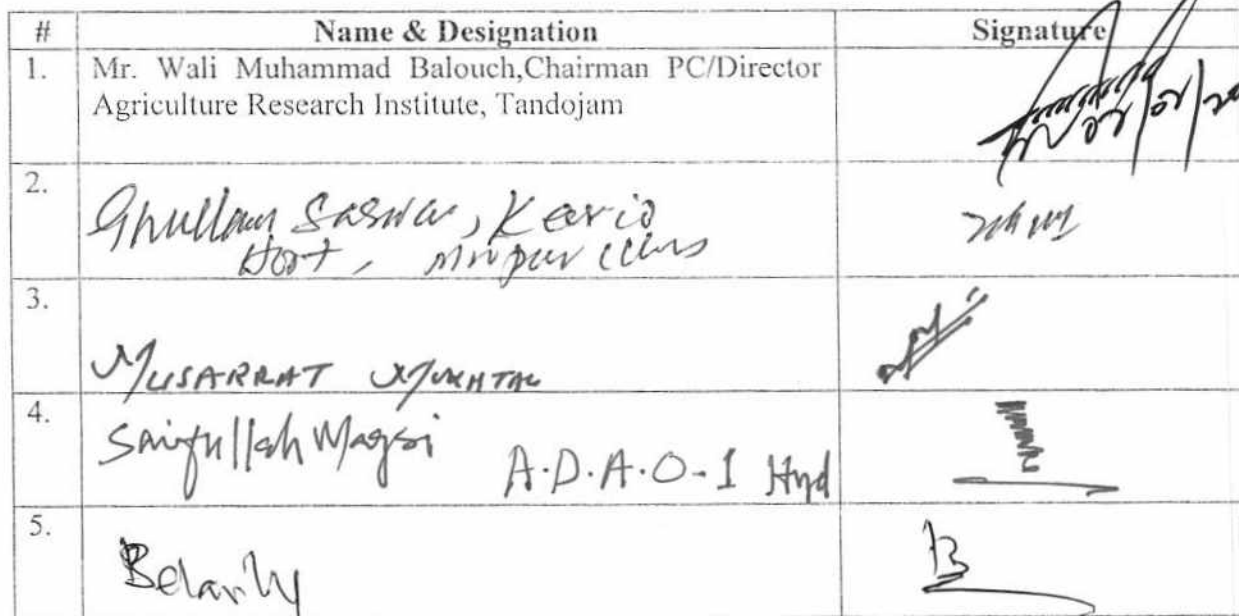 # Name & Designation Signature
1. Mr. Wali Muhammad Balouch,Chairman PC/Director
Agriculture Research Institute, Tandojam
2.
Ghullam Sarwar, Kerio
Hort, Mirpur
3.
MUSARRAT MUKHTAR
4.
Saifullah Magsi A.D.A.O-I Hyd
5.